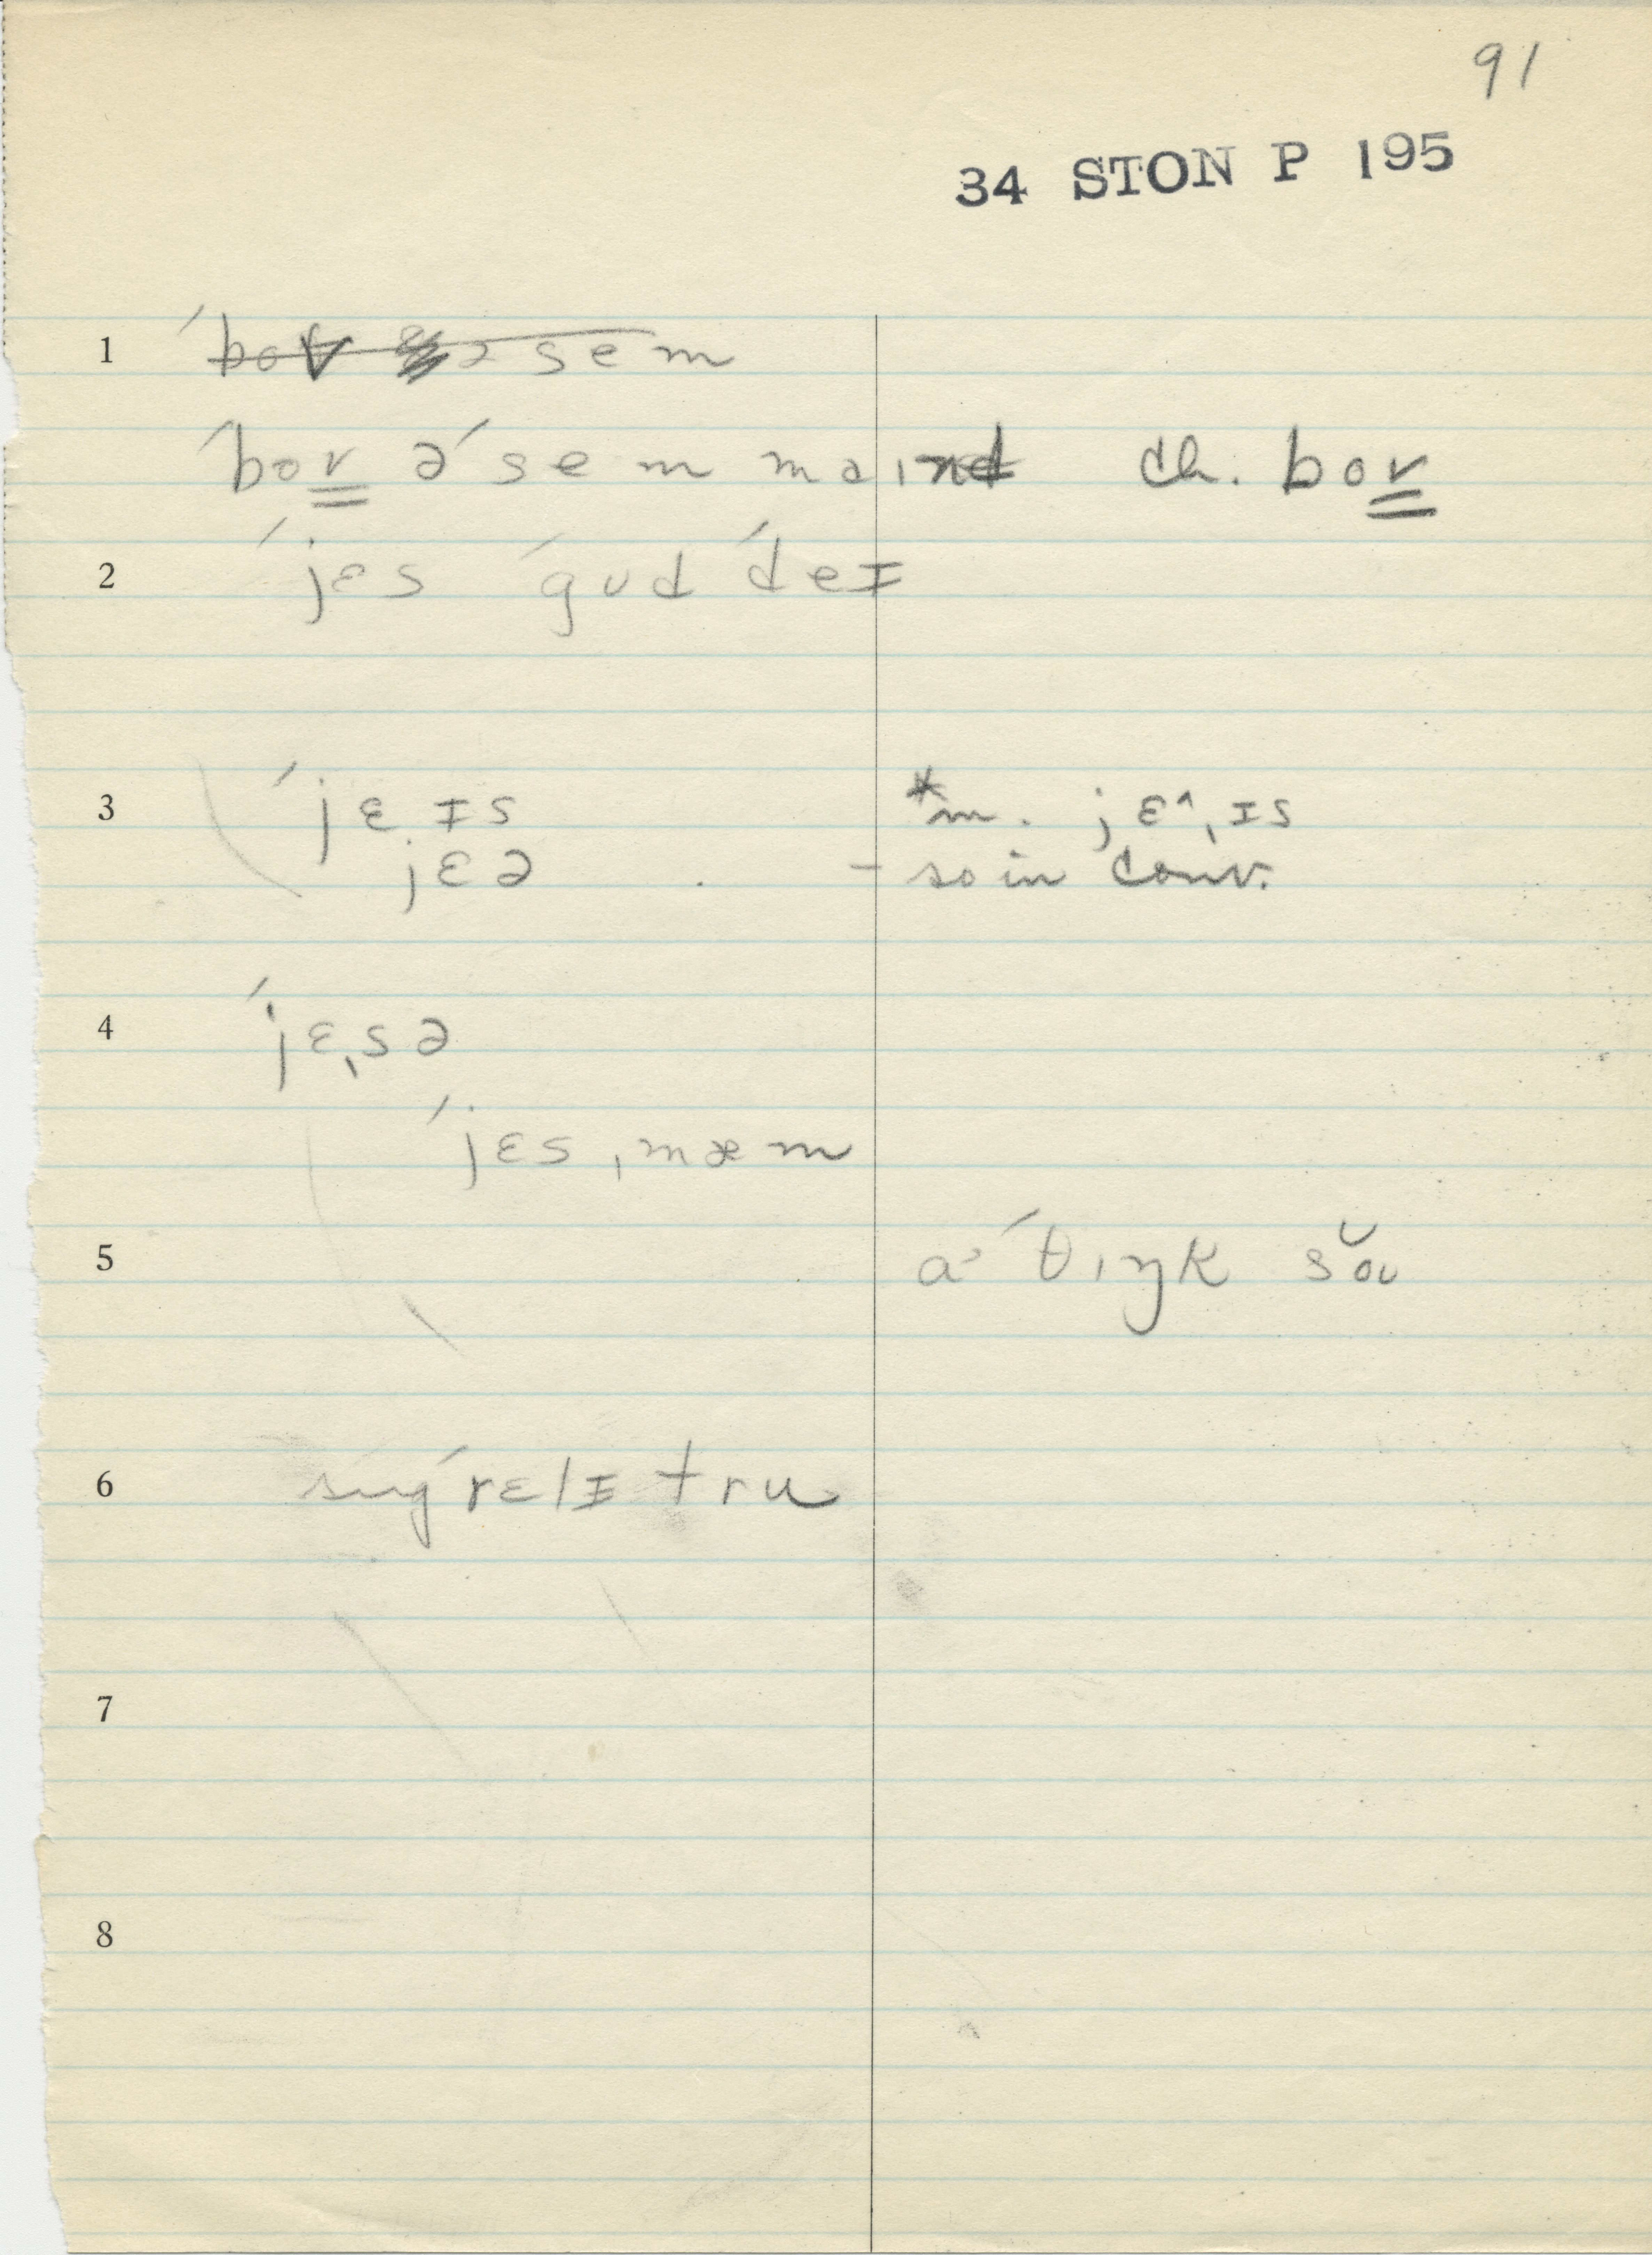 91
34 STON P 195
1 ˈbov ə sem
ˈbov əˈsem maɪnd ch. bov
2 ˈjɛs ˈgʊd ˈdeɪ
3 ˈjɛɪs *m. jɛ^ˌɪs
jɛə - so in conv.
4 ˈjɛˌsə
ˈjɛsˌmæm
5 aˈθɪŋk sŏʊ
6 sugˈrɛlɪ tru
7
8